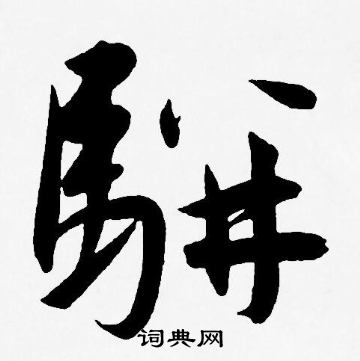 駢
词典网